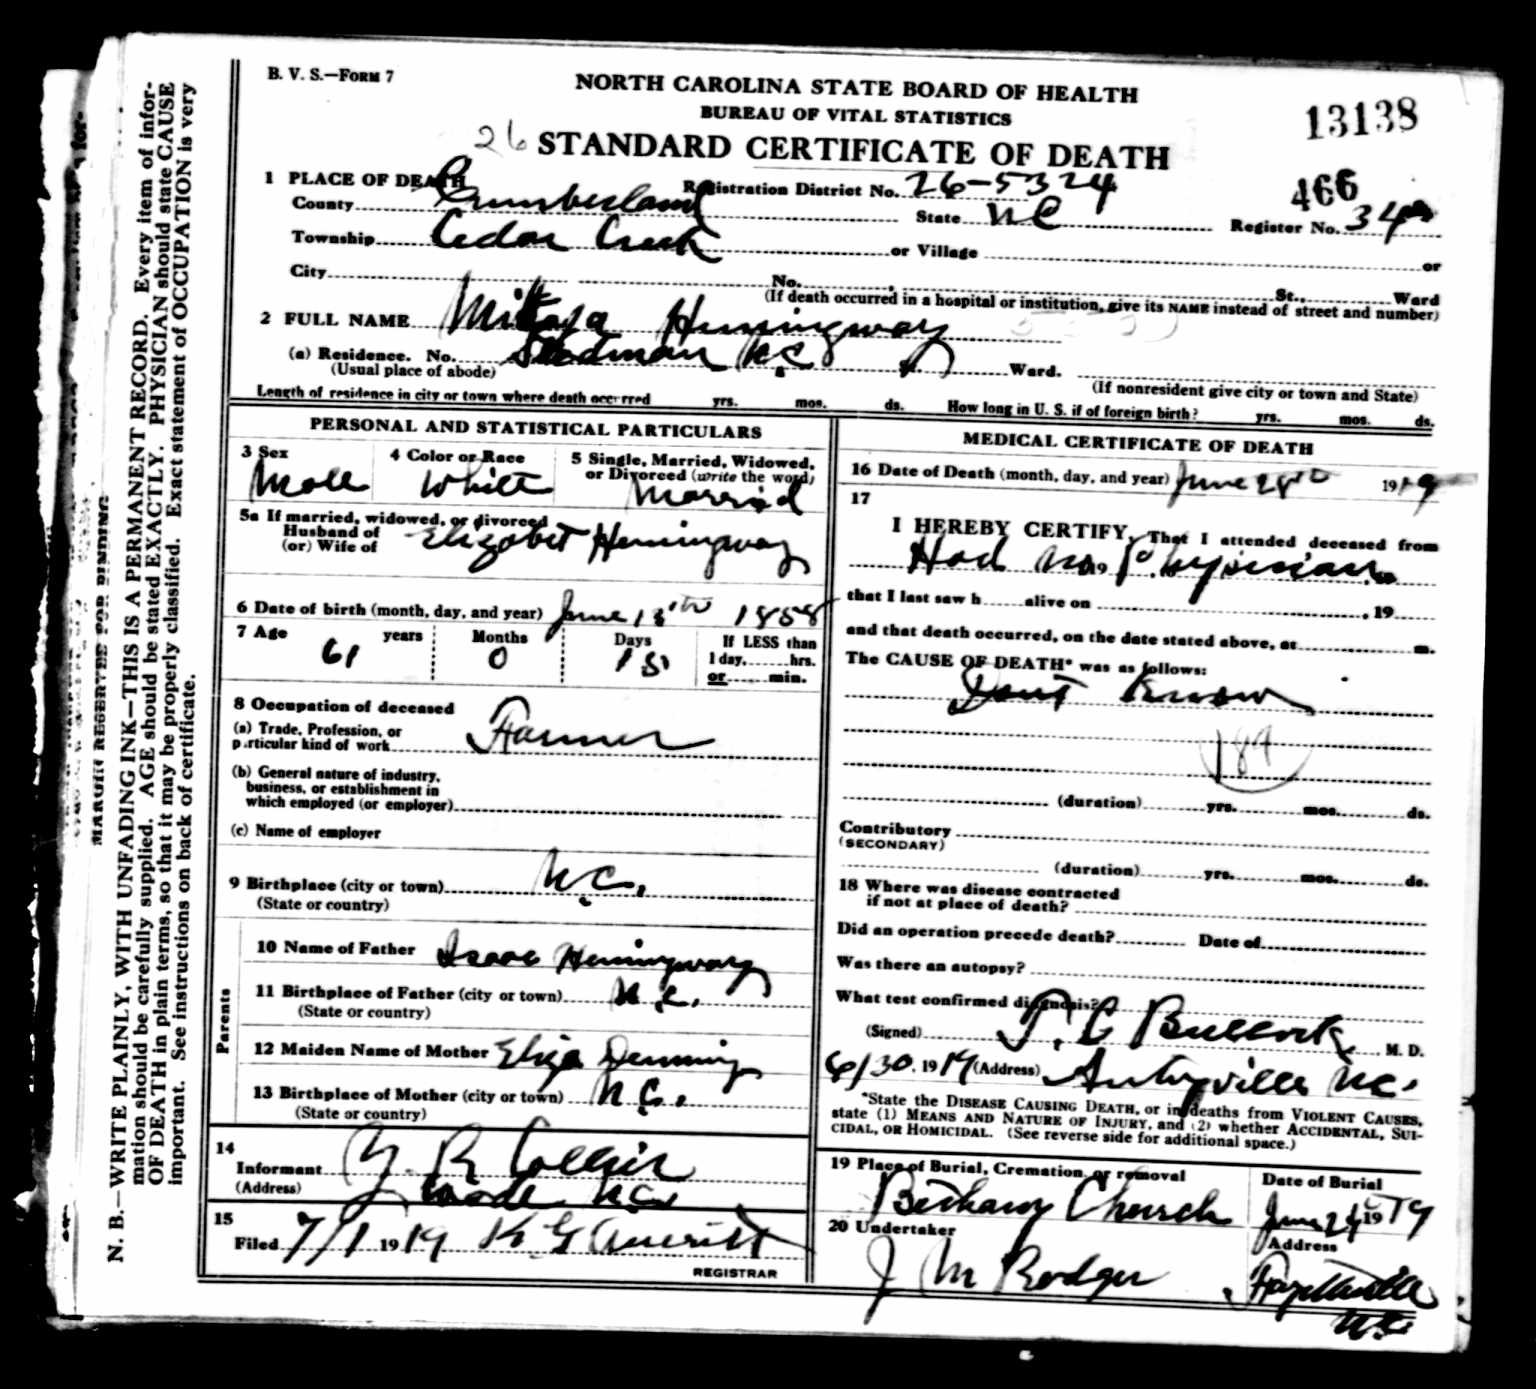 B. V. S.—Form 7
NORTH CAROLINA STATE BOARD OF HEALTH
BUREAU OF VITAL STATISTICS
13138
26 STANDARD CERTIFICATE OF DEATH
1 PLACE OF DEATH
Registration District No. 26-5324
466
County Cumberland State NC Register No. 34
Township Cedar Creek or Village or
City No. St., Ward
(If death occurred in a hospital or institution, give its NAME instead of street and number)
2 FULL NAME Hemingway
(a) Residence. No. Stedman N.C. Ward.
(Usual place of abode) (If nonresident give city or town and State)
Length of residence in city or town where death occurred yrs. mos. ds. How long in U. S. if of foreign birth? yrs. mos. ds.
PERSONAL AND STATISTICAL PARTICULARS
3 Sex 4 Color or Race 5 Single, Married, Widowed,
or Divorced (write the word)
Male White Married
5a If married, widowed, or divorced
Husband of
(or) Wife of Elizabet Hemingway
6 Date of birth (month, day, and year) June 13th 1858
7 Age years Months Days If LESS than
61 0 15 1 day, hrs.
or min.
8 Occupation of deceased
(a) Trade, Profession, or
particular kind of work Farmer
(b) General nature of industry,
business, or establishment in
which employed (or employer)
(c) Name of employer
9 Birthplace (city or town) N.C.
(State or country)
Parents
10 Name of Father Isaac Hemingway
11 Birthplace of Father (city or town) N.C.
(State or country)
12 Maiden Name of Mother Eliza Denning
13 Birthplace of Mother (city or town) N.C.
(State or country)
14
Informant Y. R. Collier
(Address) Wade N.C.
15
Filed 7/1 1919 K G Averitt
REGISTRAR
MEDICAL CERTIFICATE OF DEATH
16 Date of Death (month, day, and year) June 28th 1919
17
I HEREBY CERTIFY, That I attended deceased from
Had no 19 Physician
that I last saw h alive on , 19
and that death occurred, on the date stated above, at m.
The CAUSE OF DEATH* was as follows:
Dont Know
189
(duration) yrs. mos. ds.
Contributory
(SECONDARY)
(duration) yrs. mos. ds.
18 Where was disease contracted
if not at place of death?
Did an operation precede death? Date of
Was there an autopsy?
What test confirmed diagnosis?
(Signed) T. C. Bullock, M. D.
6/30, 1919 (Address) Autryville N.C.
*State the DISEASE CAUSING DEATH, or in deaths from VIOLENT CAUSES,
state (1) MEANS AND NATURE OF INJURY, and (2) whether ACCIDENTAL, SUI-
CIDAL, OR HOMICIDAL. (See reverse side for additional space.)
19 Place of Burial, Cremation, or removal Date of Burial
Bethany Church June 29 1919
20 Undertaker Address
J M Rodger Fayetteville
N.C.
MARGIN RESERVED FOR BINDING
N. B.—WRITE PLAINLY, WITH UNFADING INK—THIS IS A PERMANENT RECORD. Every item of infor-
mation should be carefully supplied. AGE should be stated EXACTLY. PHYSICIAN should state CAUSE
OF DEATH in plain terms, so that it may be properly classified. Exact statement of OCCUPATION is very
important. See instructions on back of certificate.